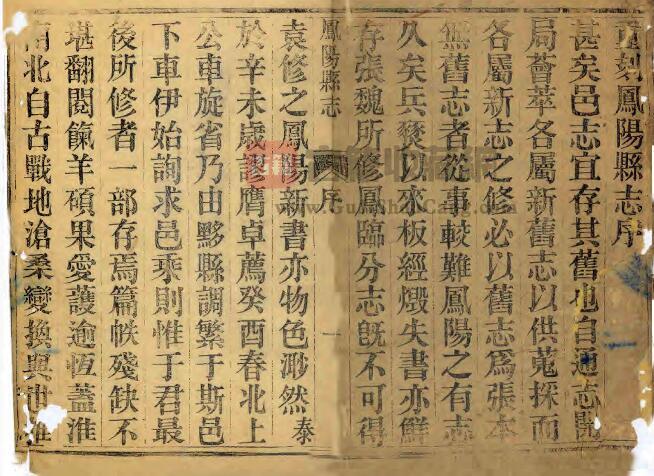 重刻鳳陽縣志序
甚矣邑志宜存其舊也自通志開
局薈萃各屬新舊志以供蒐採而
各屬新志之修必以舊志為張本
無舊志者從事較難鳳陽之有志
久矣兵燹以來板經燬失書亦鮮
存張魏所修鳳臨分志旣不可得
鳳陽縣志 序 一
袁修之鳳陽新書亦物色渺然泰
於辛未歲謬膺卓薦癸酉春北上
公車旋省乃由黟縣調繁于斯邑
下車伊始詢求邑乘則惟于君最
後所修者一部存焉篇帙殘缺不
堪翻閱餼羊碩果愛護逾恆蓋淮
南北自古戰地滄桑變換與他
古籍
www.GuJiShuCang.com